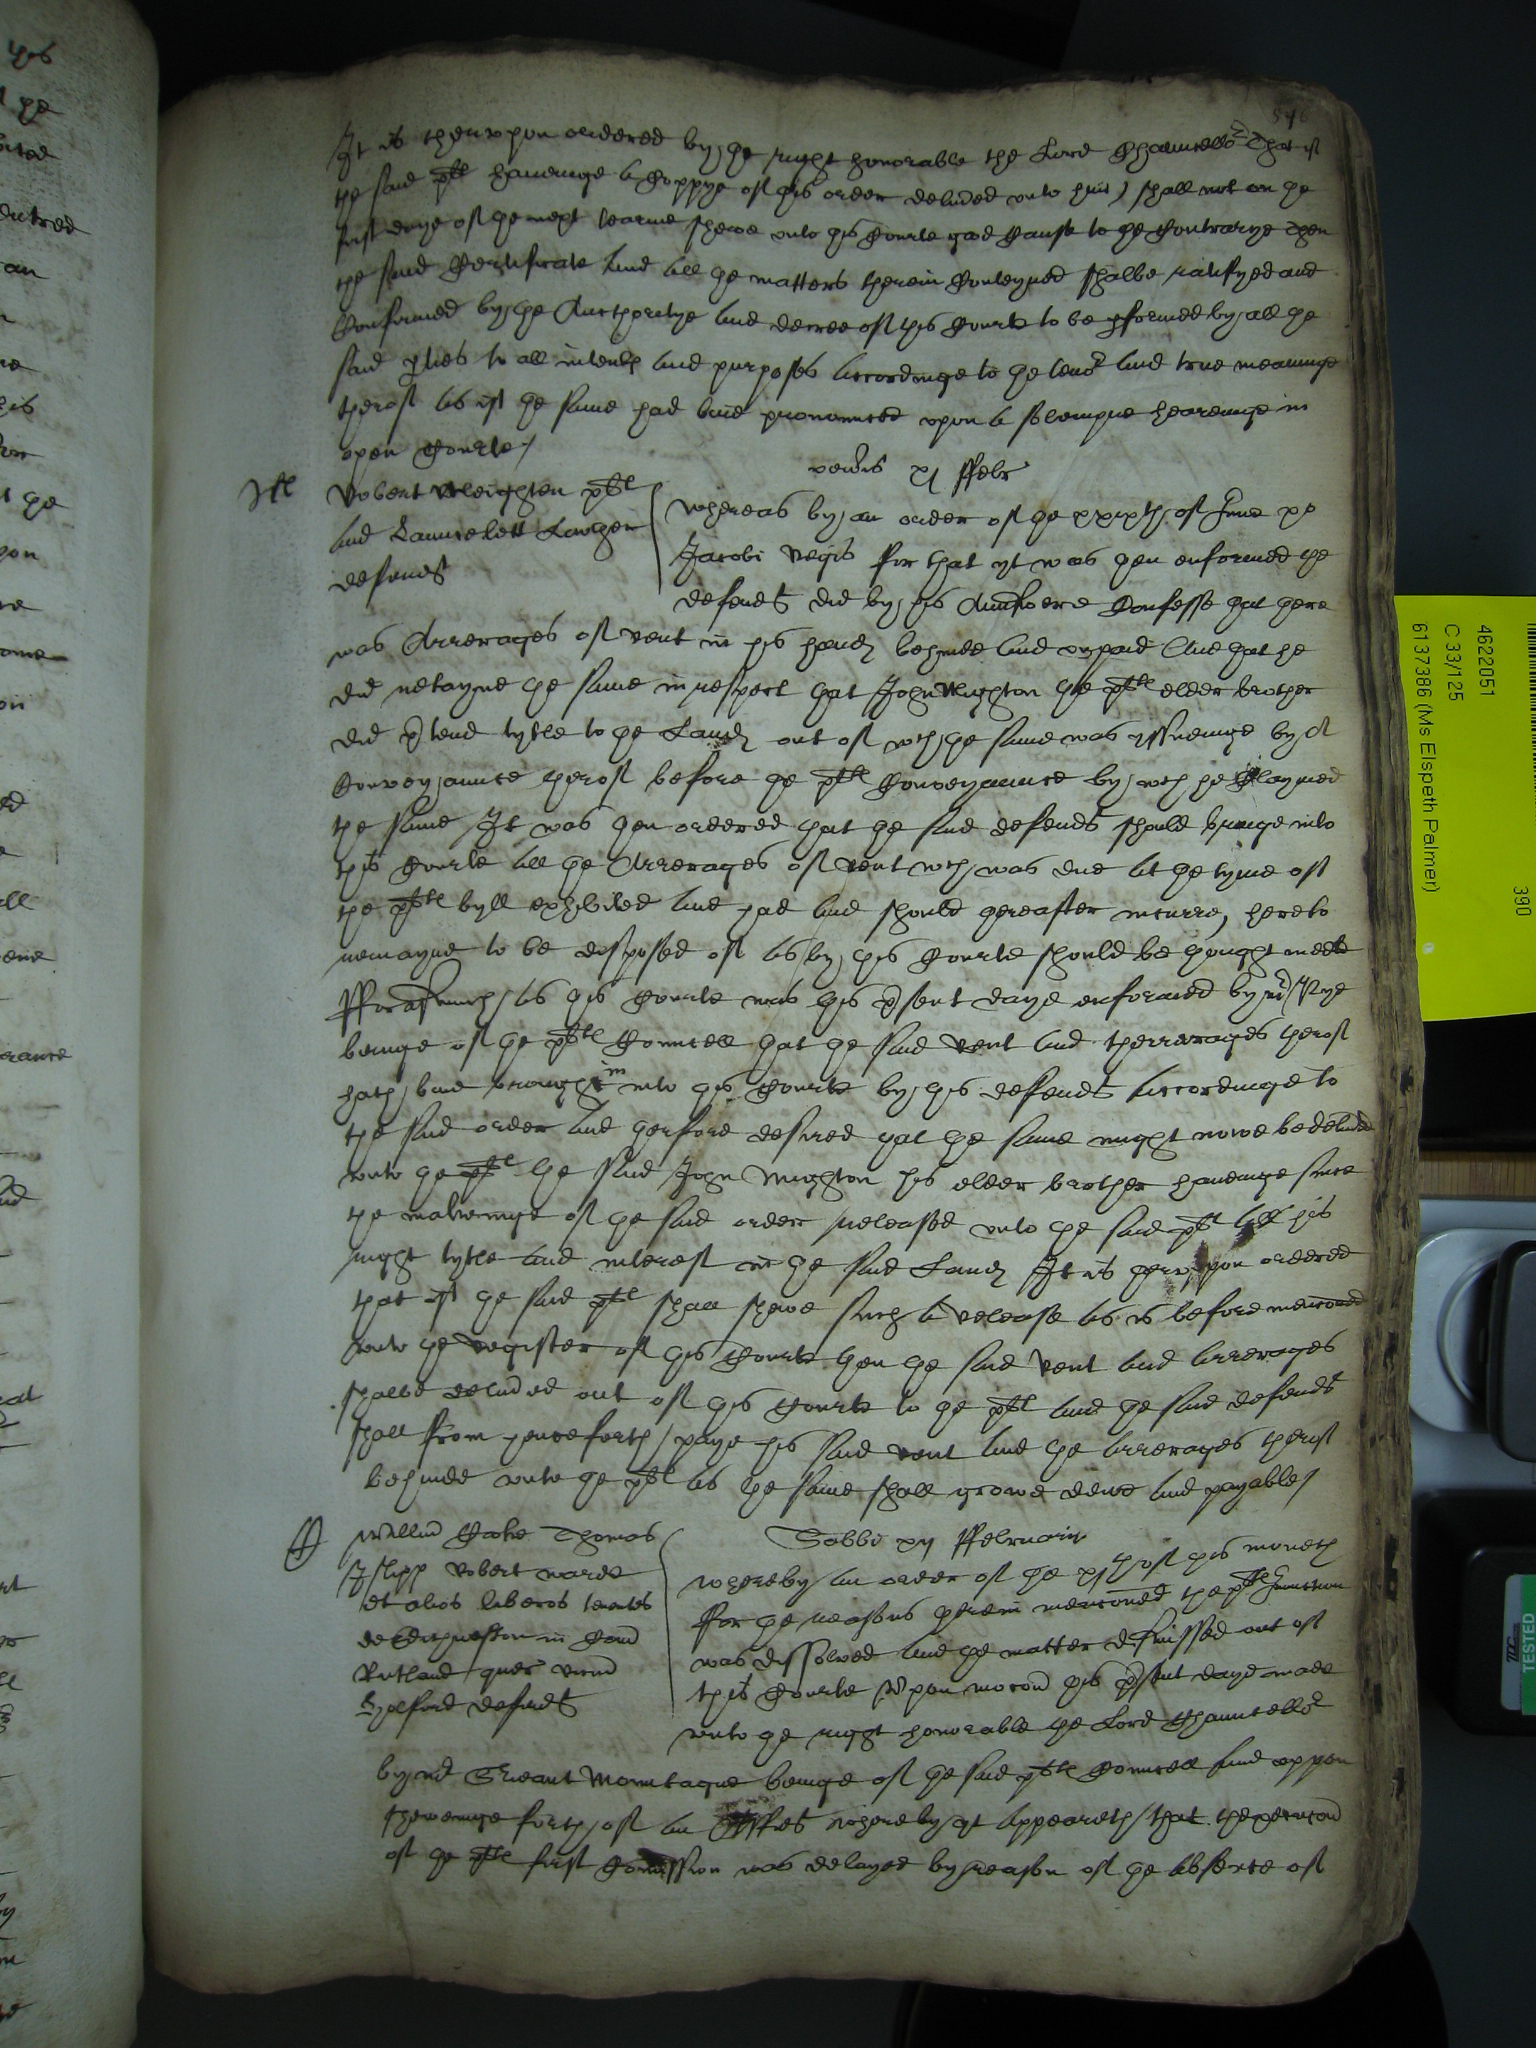 546
It is thereupon ordered by the right honorable the Lord Chauncellor That if
the said pltf haveinge a Coppye of this order delivered unto him shall not on the
first daye of the next tearme shewe unto this Courte good Cause to the Contrarye Then
the said Certificate and all the matters therein Conteyned shalbe ratifyed and
Confirmed by the Aucthoritye and decree of this Courte to be pformed by all the
said pties to all intents and purposes accordinge to the tenor and true meaninge
therof as if the same had bine pronounced upon a solempne hearinge in
open Courte
Veneris xj ffebr
Robert Wleighten pltf
and Launcelett Lowther
defendt
Whereas by an order of the of June xo
Jacobi Regis for that yt was then enformed the
defendt did by his Aunswere Confesse that there
was Arrerages of rent in his hands behinde and unpaid And that he
did retayne the same in respect that John Wighton the pltf elder brother
did ptend tytle to the Lands out of wch the same was yssueinge by a
Conveyaunce therof before the pltf Conveyaunce by wch he Claymed
the same It was then ordered that the said defendt should bringe into
this Courte all the Arrerages of rent wch was due at the tyme of
the pltf byll exhibited and had and should thereafter incurre, here to
remayne to be disposed of as by this Courte should be thought meete
fforasmuch as this Courte was this psent daye enformed by mr Pye
beinge of the pltf Councell that the said rent and therrerages therof
hath bine brought in into this Courte by this defendt accordinge to
the said order and therfore desired that the same might nowe be delivered
unto the pltf the said John Wighton his elder brother haveinge since
the makeinge of the said order released unto the said pltf all his
right tytle and interest in the said Lands It is thereupon ordered
that if the said pltf shall shewe such a release as is before menconed
unto the Register of this Courte then the said rent and arrerages
shalbe delivered out of this Courte to the pltf and the said defendt
shall from henceforth paye his said rent and the arrerages therof
behinde unto the pltf as the same shall growe dewe and payable
Sabbi xij ffebruarii
Willm Cooke Thomas
Islipp Robert warde
et alios liberos tenentes
de in Com
Rutland quer
defendt
Whereby an order of the xjth of this moneth
for the reasons therein menconed the pltf Iniunction
was dissolved and the matter dismissed out of
this Courte Upon mocon this psent daye made
unto the right honorable the Lord Chauncellor
by mr Srieant Mountague beinge of the said pltf Councell and uppon
sheweinge forth of an whereby yt appeareth that the execucon
of the pltf first Comission was delayed by reason of the absence of
4622051
C 33/125
6137386 (Ms Elspeth Palmer)
390
TESTED